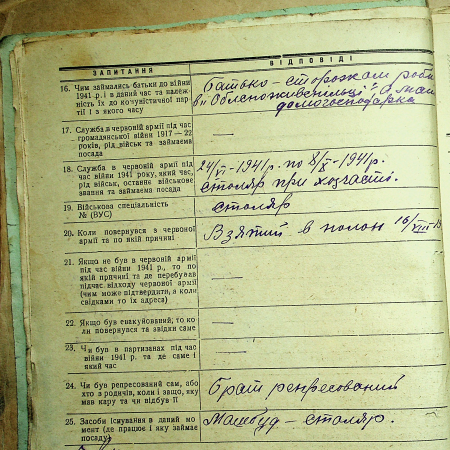 ЗАПИТАННЯ ВІДПОВІДІ
16. Чим займались батьки до війни
1941 р. і в даний час та належ-
ність їх до комуністичної пар-
тії і з якого часу
Батько — сторожом
в "
домогосподарка
17. Служба в червоній армії під час
громадянської війни 1917 — 22
років, рід військ та займаема
посада
—
18. Служба в червоній армії під
час війни 1941 року, який час,
рід військ, останнє військове
звання та займаема посада
24/VI - 1941р. по 8/X - 1941р.
столяр при хозчасті.
19. Військова спеціальність
№ (ВУС)
столяр
20. Коли повернувся з червоної
армії та по якій причині
Взятий в полон 16/VIII-
21. Якщо не був в червоній армії
під час війни 1941 р., то по
якій причині та де перебував
підчас відходу червоної армії
(чим може підтвердити, а коли
свідками то їх адреса)
—
22. Якщо був евакуйований, то ко-
ли повернувся та звідки саме
—
23. Чи був в партизанах під час
війни 1941 р. та де саме і
який час
—
24. Чи був репресований сам, або
хто з родичів, коли і защо, яку
мав кару та чи відбув її
Брат репресований
25. Засоби існування в даний мо-
мент (де працює і яку займає
посаду)
Машбуд — столяр.